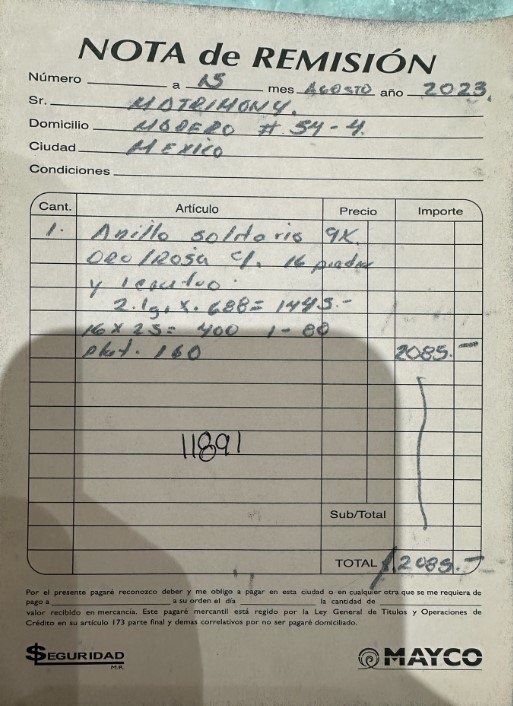 NOTA de REMISIÓN
Número a 15 mes AGOSTO año 2023.
Sr. MATRIMONY.
Domicilio MADERO # 54-4.
Ciudad MEXICO
Condiciones
Cant. Artículo Precio Importe
1. Anillo solitario 9K.
Oro/Rosa c/. 16 piedras
y
2.1g. x. 688= 1445.-
16 x 25= 400 1- 80
pkt. 160 2085.-
11891
Sub/Total
TOTAL $2085.-
Por el presente pagaré reconozco deber y me obligo a pagar en esta ciudad o en cualquier otra que se me requiera de
pago a a su orden el día la cantidad de
valor recibido en mercancía. Este pagaré mercantil está regido por la Ley General de Títulos y Operaciones de
Crédito en su artículo 173 parte final y demas correlativos por no ser pagaré domiciliado.
$EGURIDAD
M.R.
MAYCO